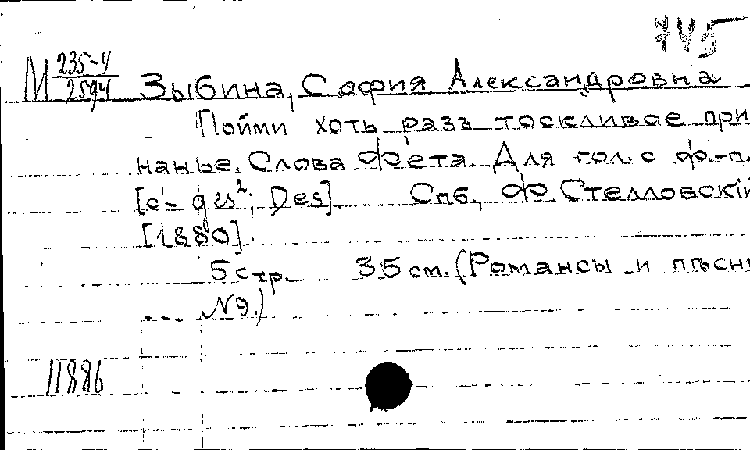 745
М 235-4/2594 Зыбина, София Александровна
Пойми хоть разъ тоскливое при
нанье. Слова Фета. Для гол. с ф.-п.
[e¹- ges²; Des]. Спб., Ф. Стелловскій
[1880].
5 стр. 35 см. (Романсы и пѣсни
... №9.)
11886